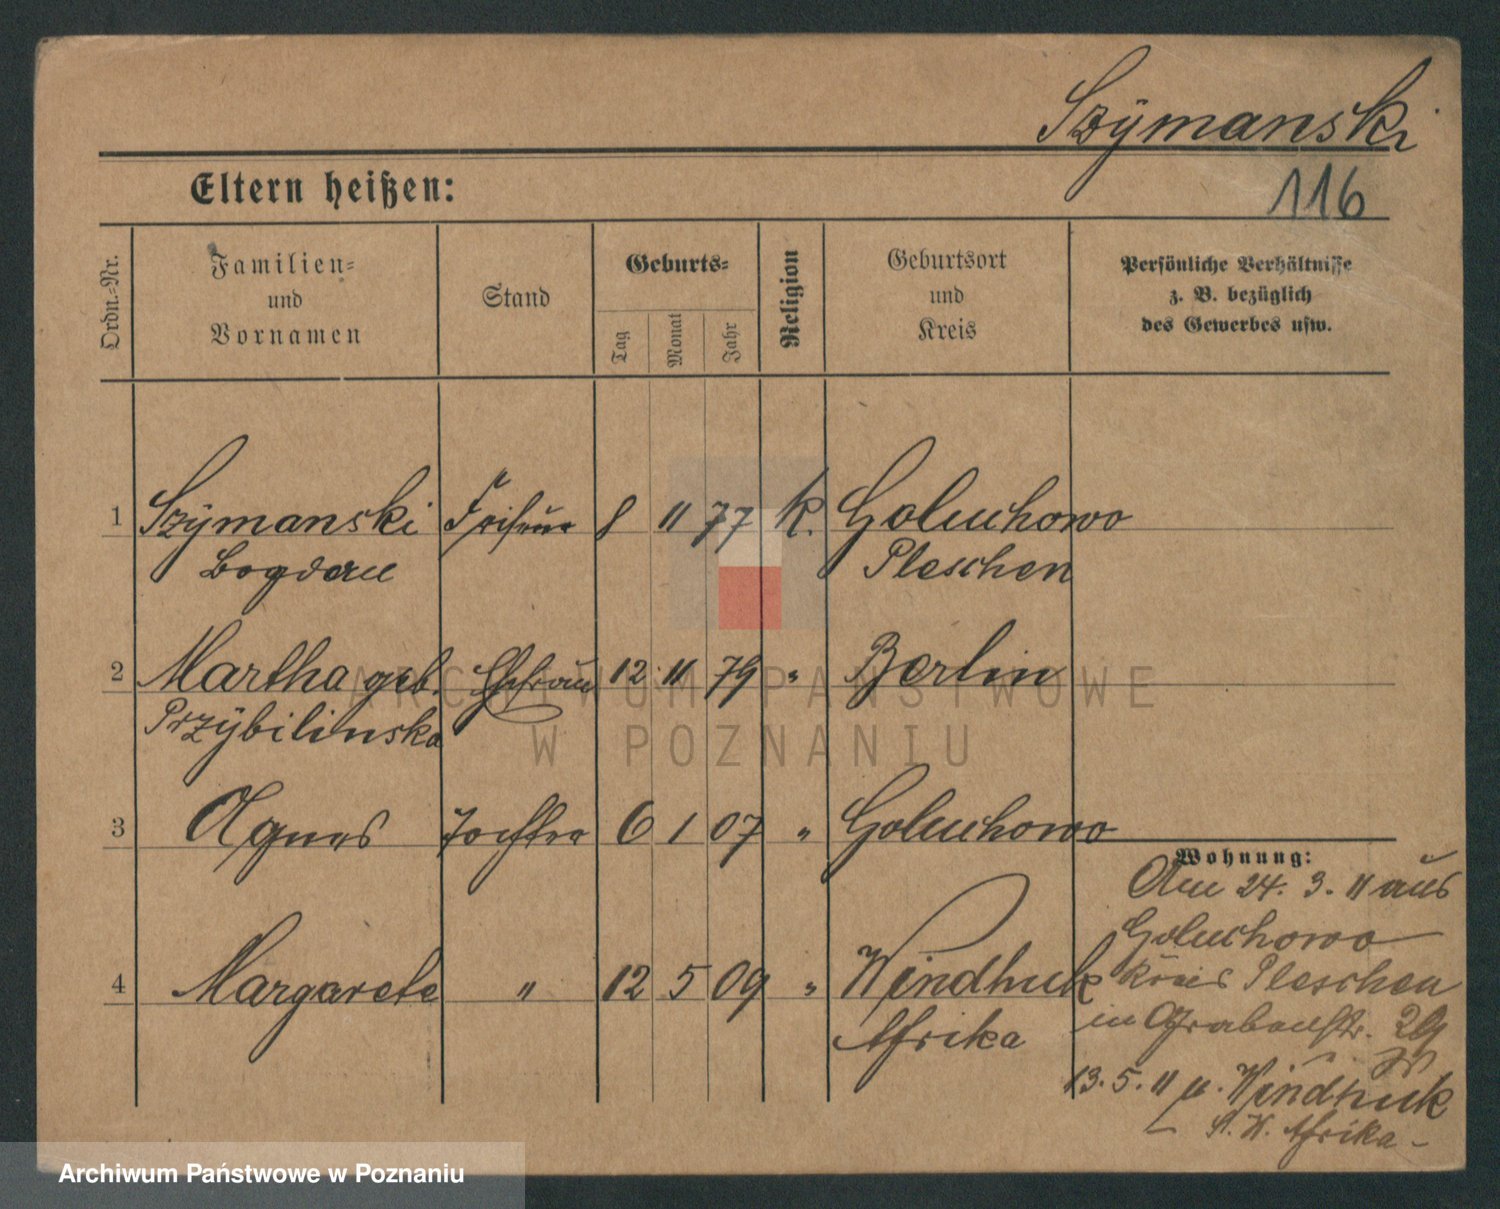 Szÿmanski
116
Eltern heißen:
Ordn.-Nr.
Familien-
und
Vornamen
Stand
Geburts-
Tag
Monat
Jahr
Religion
Geburtsort
und
Kreis
Persönliche Verhältnisse
z. B. bezüglich
des Gewerbes usw.
1 Szÿmanski Friseur 8 11 77 k. Goluchowo
Bogdan Pleschen
2 Martha geb. Ehefrau 12 11 79 " Berlin
Przÿbilinska
3 Agnes Tochter 6 1 07 " Goluchowo
Wohnung:
Am 24. 3. 11 aus
Goluchowo
Kreis Pleschen
in Grabenstr. 29
4 Margarete " 12 5 09 " Windhuk
Afrika
13. 5. 11 n. Windhuk
S. W. Afrika
ARCHIWUM PAŃSTWOWE
W POZNANIU
Archiwum Państwowe w Poznaniu